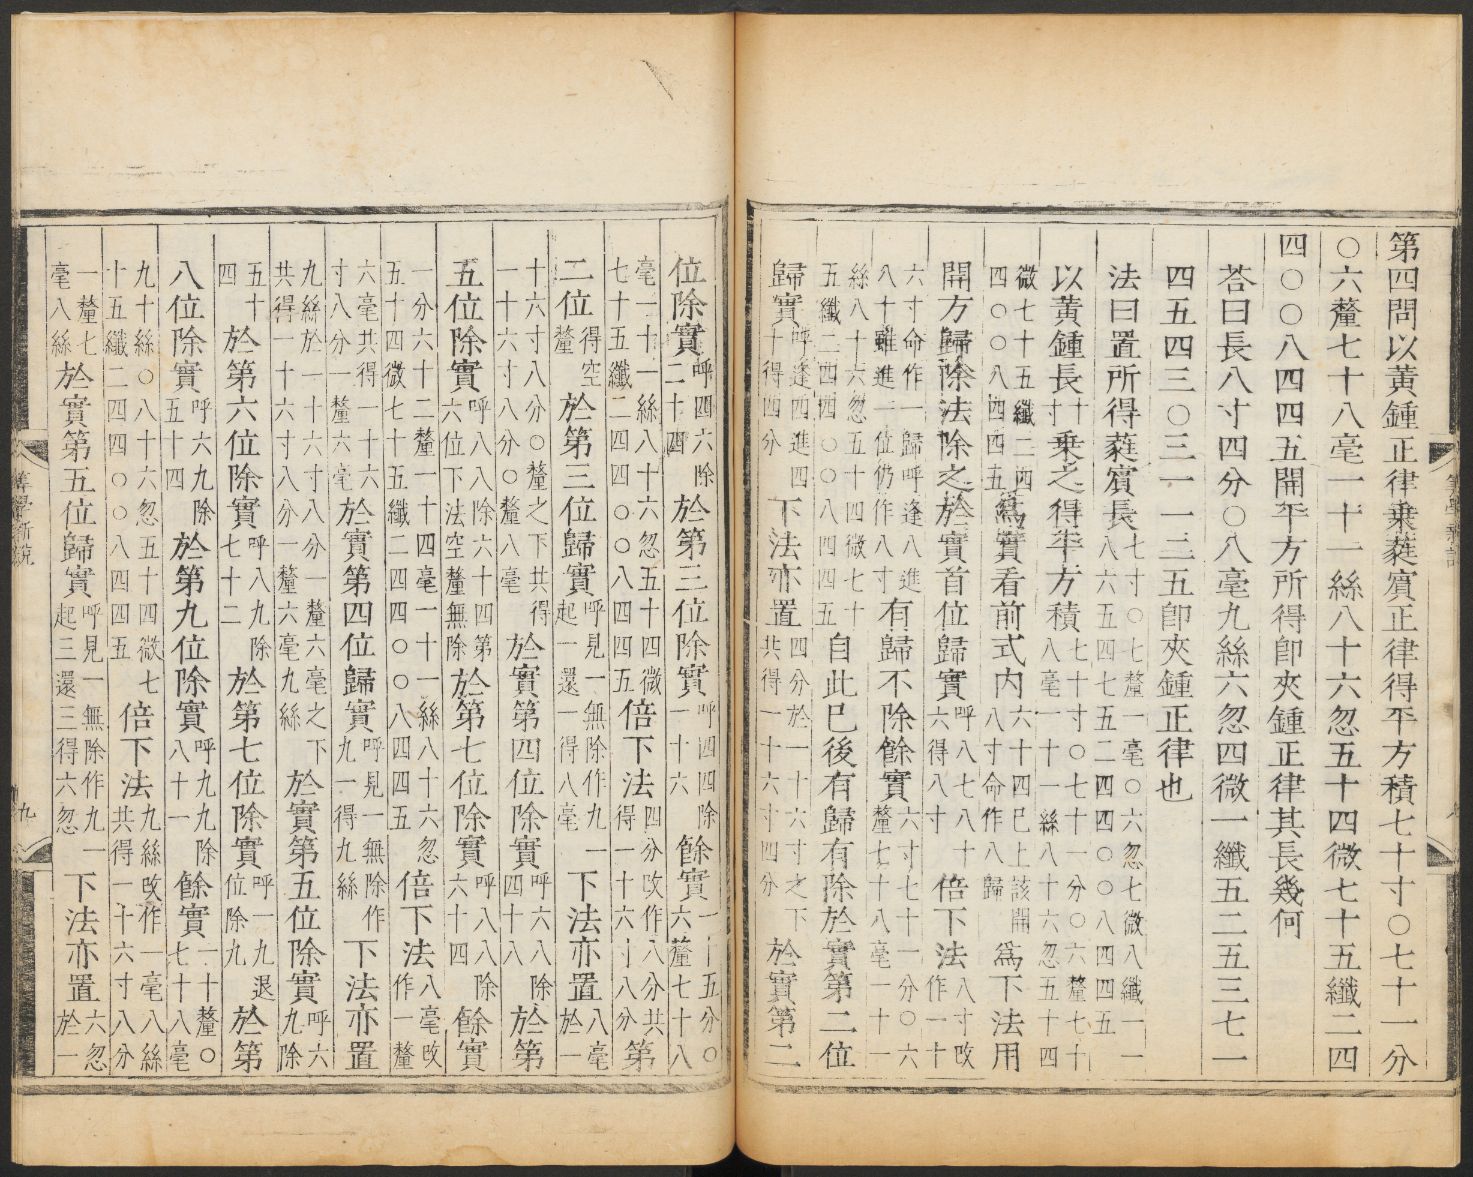 第四問以黃鍾正律乗蕤賔正律得平方積七十寸〇七十一分
〇六釐七十八毫一十一絲八十六忽五十四微七十五纖二四
四〇〇八四四五開平方所得卽夾鍾正律其長幾何
荅曰長八寸四分〇八毫九絲六忽四微一纖五二五三七一
四五四三〇三一一三五卽夾鍾正律也
法曰置所得蕤賔長七寸〇七釐一毫〇六忽七微八纖一一八六五四七五二四四〇〇八四四五
以黃鍾長十寸乗之得平方積七十寸〇七十一分〇六釐七十八毫一十一絲八十六忽五十四
微七十五纖二四四〇〇八四四五爲實看前式内六十四已上該開八寸命作八歸爲下法用
開方歸除法除之於實首位歸實呼八七八十六得八寸倍下法八寸改作一十
六寸命作一歸呼逢八進八十雖進一位仍作八寸有歸不除餘實六寸七十一分〇六釐七十八毫一十一
絲八十六忽五十四微七十五纖二四四〇〇八四四五自此已後有歸有除於實第二位
歸實呼逢四進四十得四分下法亦置四分於一十六寸之下共得一十六寸四分於實第二
位除實呼四六除二十四於第三位除實呼四四除一十六餘實一十五分〇六釐七十八
毫一十一絲八十六忽五十四微七十五纖二四四〇〇八四四五倍下法四分改作八分共得一十六寸八分第
二位得空釐於第三位歸實呼見一無除作九一起一還一得八毫下法亦置八毫於一
十六寸八分〇釐之下共得一十六寸八分〇釐八毫於實第四位除實呼六八除四十八於第
五位除實呼八八除六十四第六位下法空釐無除於第七位除實呼八八除六十四餘實
一分六十二釐一十四毫一十一絲八十六忽五十四微七十五纖二四四〇〇八四四五倍下法八毫改作一釐
六毫共得一十六寸八分一釐六毫於實第四位歸實呼見一無除作九一得九絲下法亦置
九絲於一十六寸八分一釐六毫之下共得一十六寸八分一釐六毫九絲於實第五位除實呼六九除
五十四於第六位除實呼八九除七十二於第七位除實呼一九退位除九於第
八位除實呼六九除五十四於第九位除實呼九九除八十一餘實一十釐〇七十八毫
九十絲〇八十六忽五十四微七十五纖二四四〇〇八四四五倍下法九絲改作一毫八絲共得一十六寸八分
一釐七毫八絲於實第五位歸實呼見一無除作九一起三還三得六忽下法亦置六忽於一